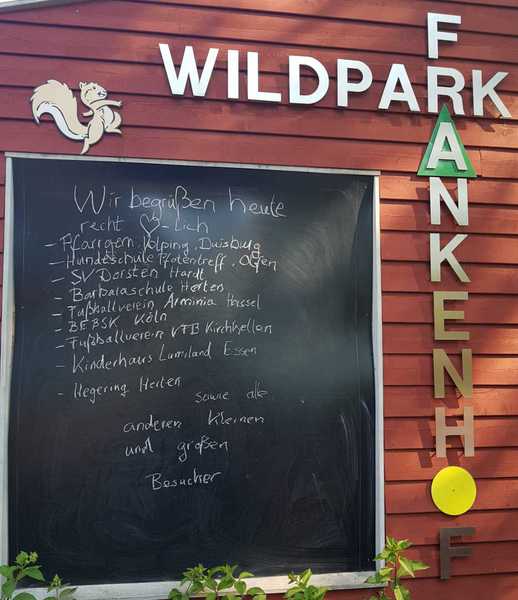 WILDPARK
FRANKENHOF
Wir begrüßen heute
recht ♡-lich
- Pfarrgem. Kolping, Duisburg
- Hundeschule Pfotentreff, Olfen
- SV Dorsten Hardt
- Barbaraschule Herten
- Fußballverein Arminia Hassel
- BFBSK Köln
- Fußballverein VFB Kirchhellen
- Kinderhaus Lumiland Essen
- Hegering Herten
sowie alle
anderen kleinen
und großen
Besucher